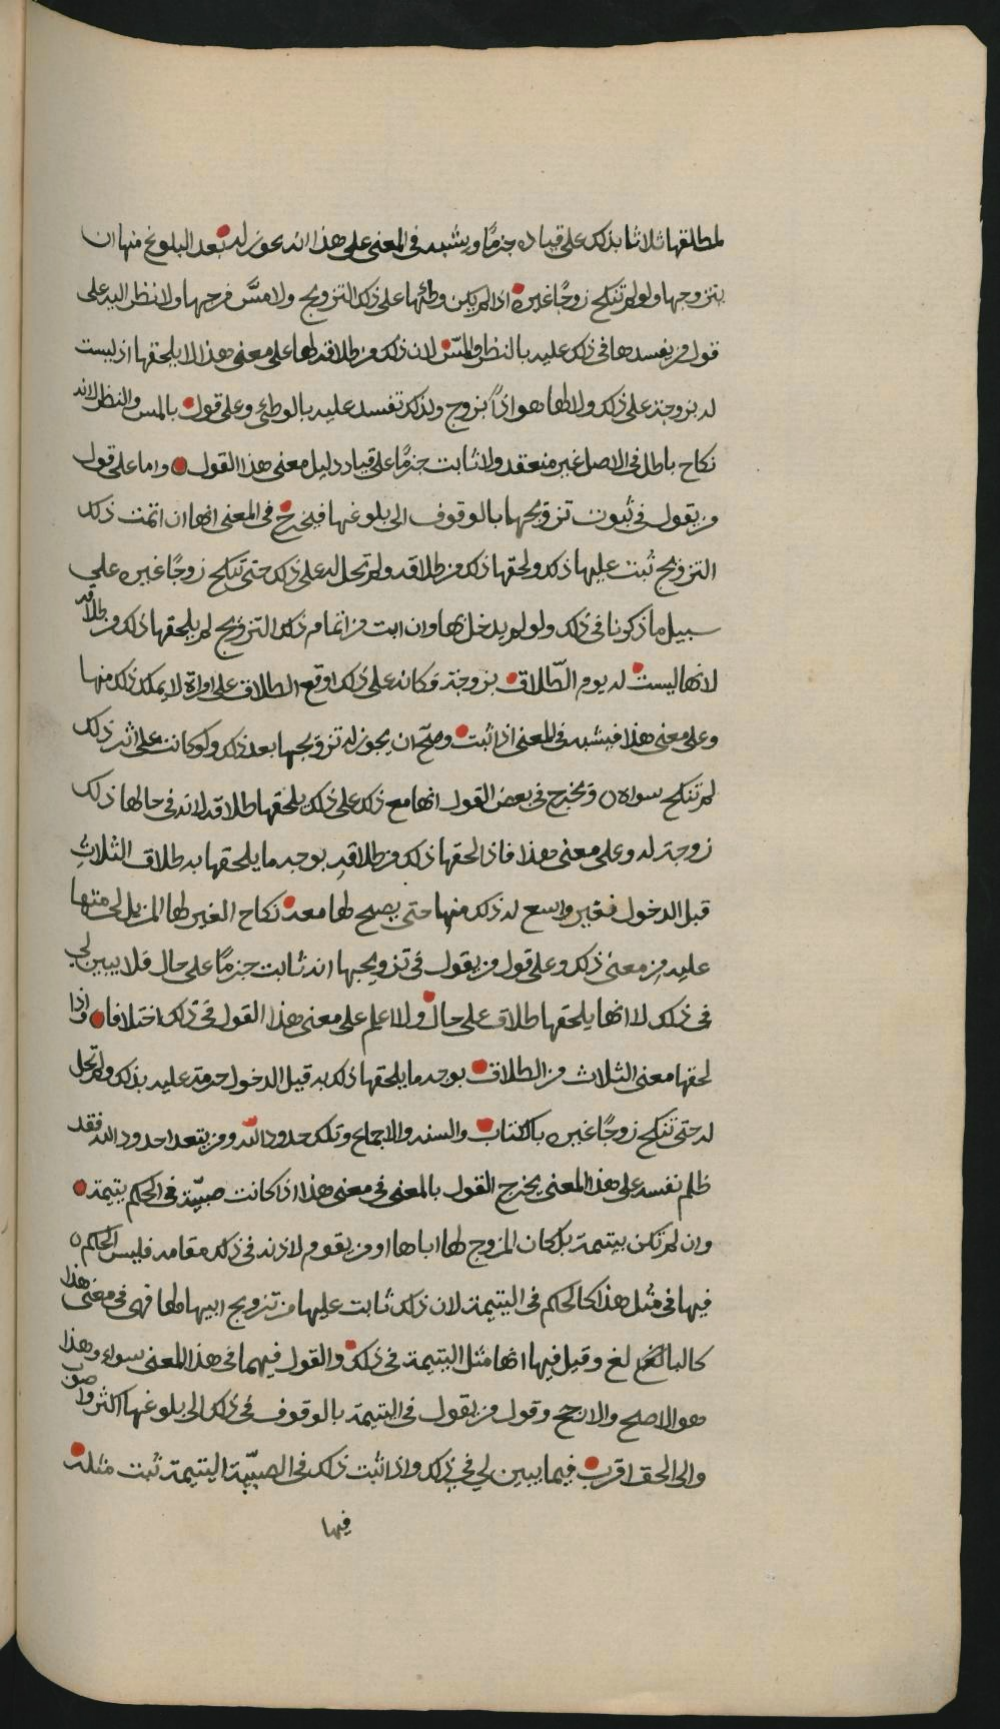 لمطلقها ثلاثا بذلك على قياده جزمًا ويشبه في المعنى على هذا انه يجوز له بعد البلوغ منها ان
يتزوجها ولو لم تنكح زوجًا غيره اذا لم يكن وطئها على ذلك التزويج ولا مسَّ فرجها ولا نظر اليه على
قول من يفسدها في ذلك عليه بالنظر والمسّ لان ذلك من طلاقه لها على معنى هذا لا يلحقها اذ ليست
له بزوجة على ذلك ولا لها هو اذًا بزوج ولذلك تفسد عليه بالوطئ وعلى قول بالمس والنظر لانه
نكاح باطل في الاصل غير منعقد ولا ثابت جزمًا على قياد دليل معنى هذا القول واما على قول
من يقول في ثبوت تزويجها بالوقوف الى بلوغها فيخرج في المعنى انها ان اتمت ذلك
التزويج ثبت عليها ذلك ولحقها ذلك من طلاقه ولم تحل له على ذلك حتى تنكح زوجًا غيره على
سبيل ما ذكرنا في ذلك ولو لم يدخل بها وان ابت من اتمام ذلك التزويج لم يلحقها ذلك من طلاقه
لانها ليست له يوم الطّلاق بزوجة وكانه على ذلك اوقع الطلاق على امراة لا يملك ذلك منها
وعلى معنى هذا فيشبه في المعنى اذا ثبت وصحّ ان يجوز له تزويجها بعد ذلك ولو كانت على اثر ذلك
لم تنكح سواه ه ويخرج في بعض القول انها مع ذلك على ذلك يلحقها طلاقه لانه في حالها ذلك
زوجة له وعلى معنى هذا فاذا لحقها ذلك من طلاقه بوجه ما يلحقها به طلاق الثلاث
قبل الدخول فغير واسع له ذلك منها حتى يصح لها معه نكاح الغير لها المزيل لحرمتها
عليه من معنى ذلك وعلى قول من يقول في تزويجها انه ثابت جزمًا على حال فلا يبين لي
في ذلك لا انها يلحقها طلاق على حال ولا اعلم على معنى هذا القول في ذلك اختلافا واذا
لحقها معنى الثلاث من الطلاق بوجه ما يلحقها ذلك به قبل الدخول حرمة عليه بذلك ولم تحل
له حتى تنكح زوجًا غيره بالكتاب والسنه والاجماع وتلك حدود الله ومن يتعد احدود الله فقد
ظلم نفسه على هذا المعنى يخرج القول بالمعنى في معنى هذا اذا كانت صبيّة في الحكم يتيمة
وان لم تكن بيتيمة بل كان المزوج لها اباها او من يقوم لاذنه في ذلك مقامه فليس الحكم ه
فيها في مثل هذا كالحكم في اليتيمة لان ذلك ثابت عليها من تزويج ابيها لها فهي في معنى هذا
كالبالغ وقيل فيها انها مثل اليتيمة في ذلك والقول فيهما في هذا المعنى سواء وهذا
هو الاصلح والارجح وقول من يقول في اليتيمة بالوقوف في ذلك الى بلوغها اكثر واصوب
والى الحق اقرب فيما يبين لي في ذلك واذا ثبت ذلك في الصبيّة اليتيمة ثبت مثله
فيها